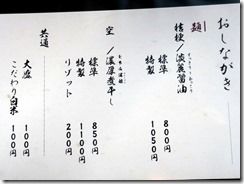 おしながき
麺
桔梗／淡麗醤油
標準 850
特製 1050
空／濃厚煮干し
標準 850円
特製 1100円
リゾット 200円
共通
大盛 100円
こだわり白米 100円